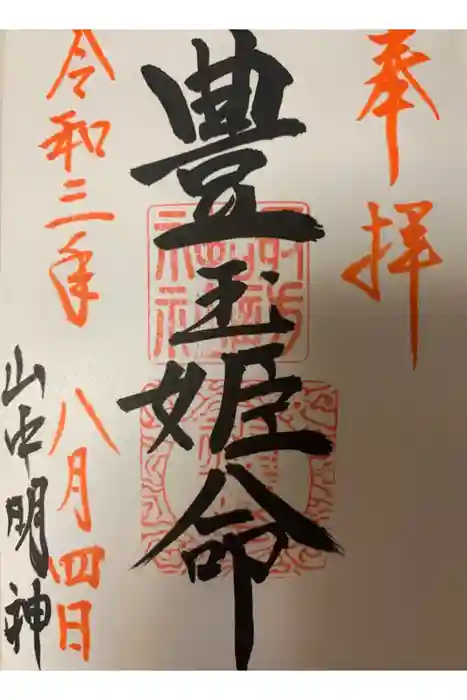 奉拝
豊玉姫命
令和三年八月四日
山中明神